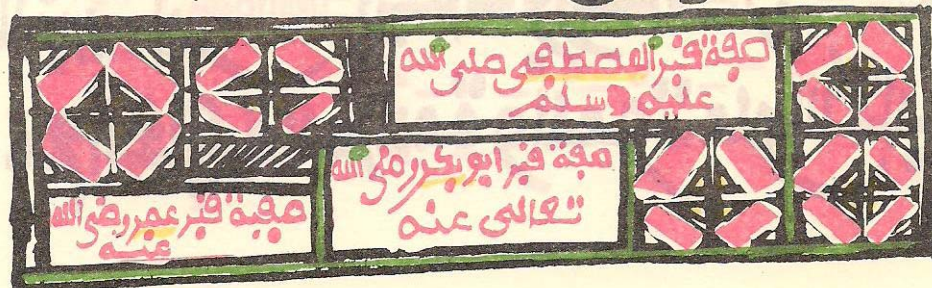 صفة قبر المصطفى صلى الله
عليه وسلم
صفة قبر ابوبكر رضى الله
تعالى عنه
صفة قبر عمر رضي الله
عنه